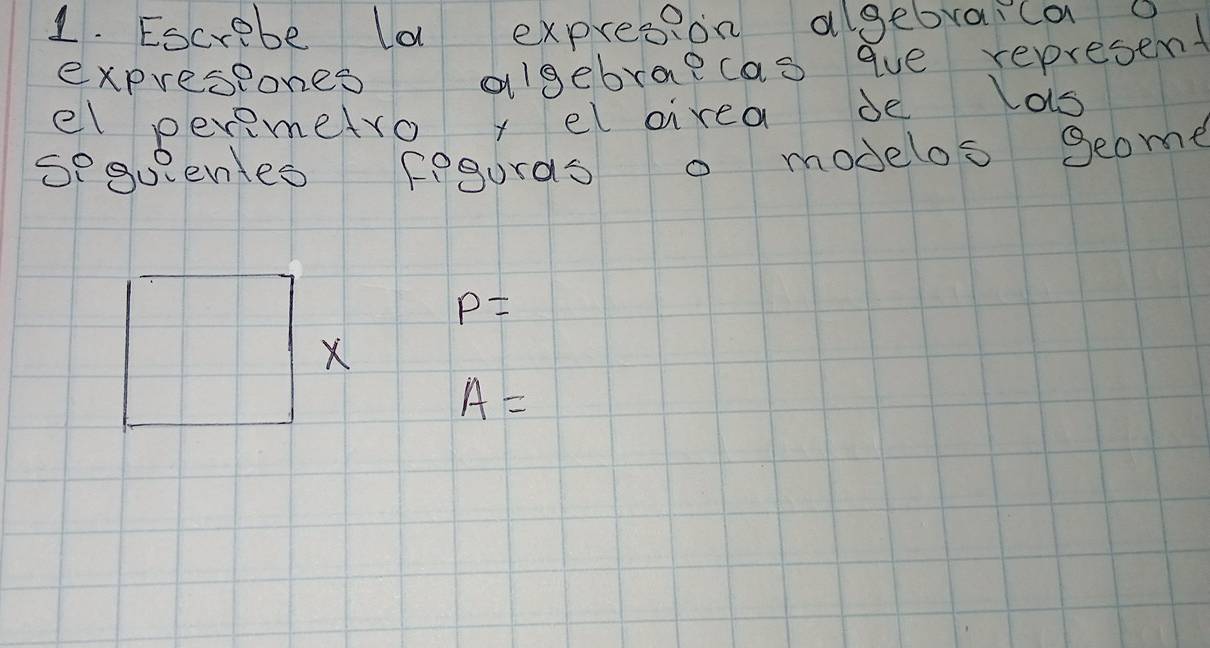 1. Escribe la expresión algebraica o
expresiones algebraicas que represent
el perimetro y el área de las
siguientes figuras o modelos geome
P=
X
A=